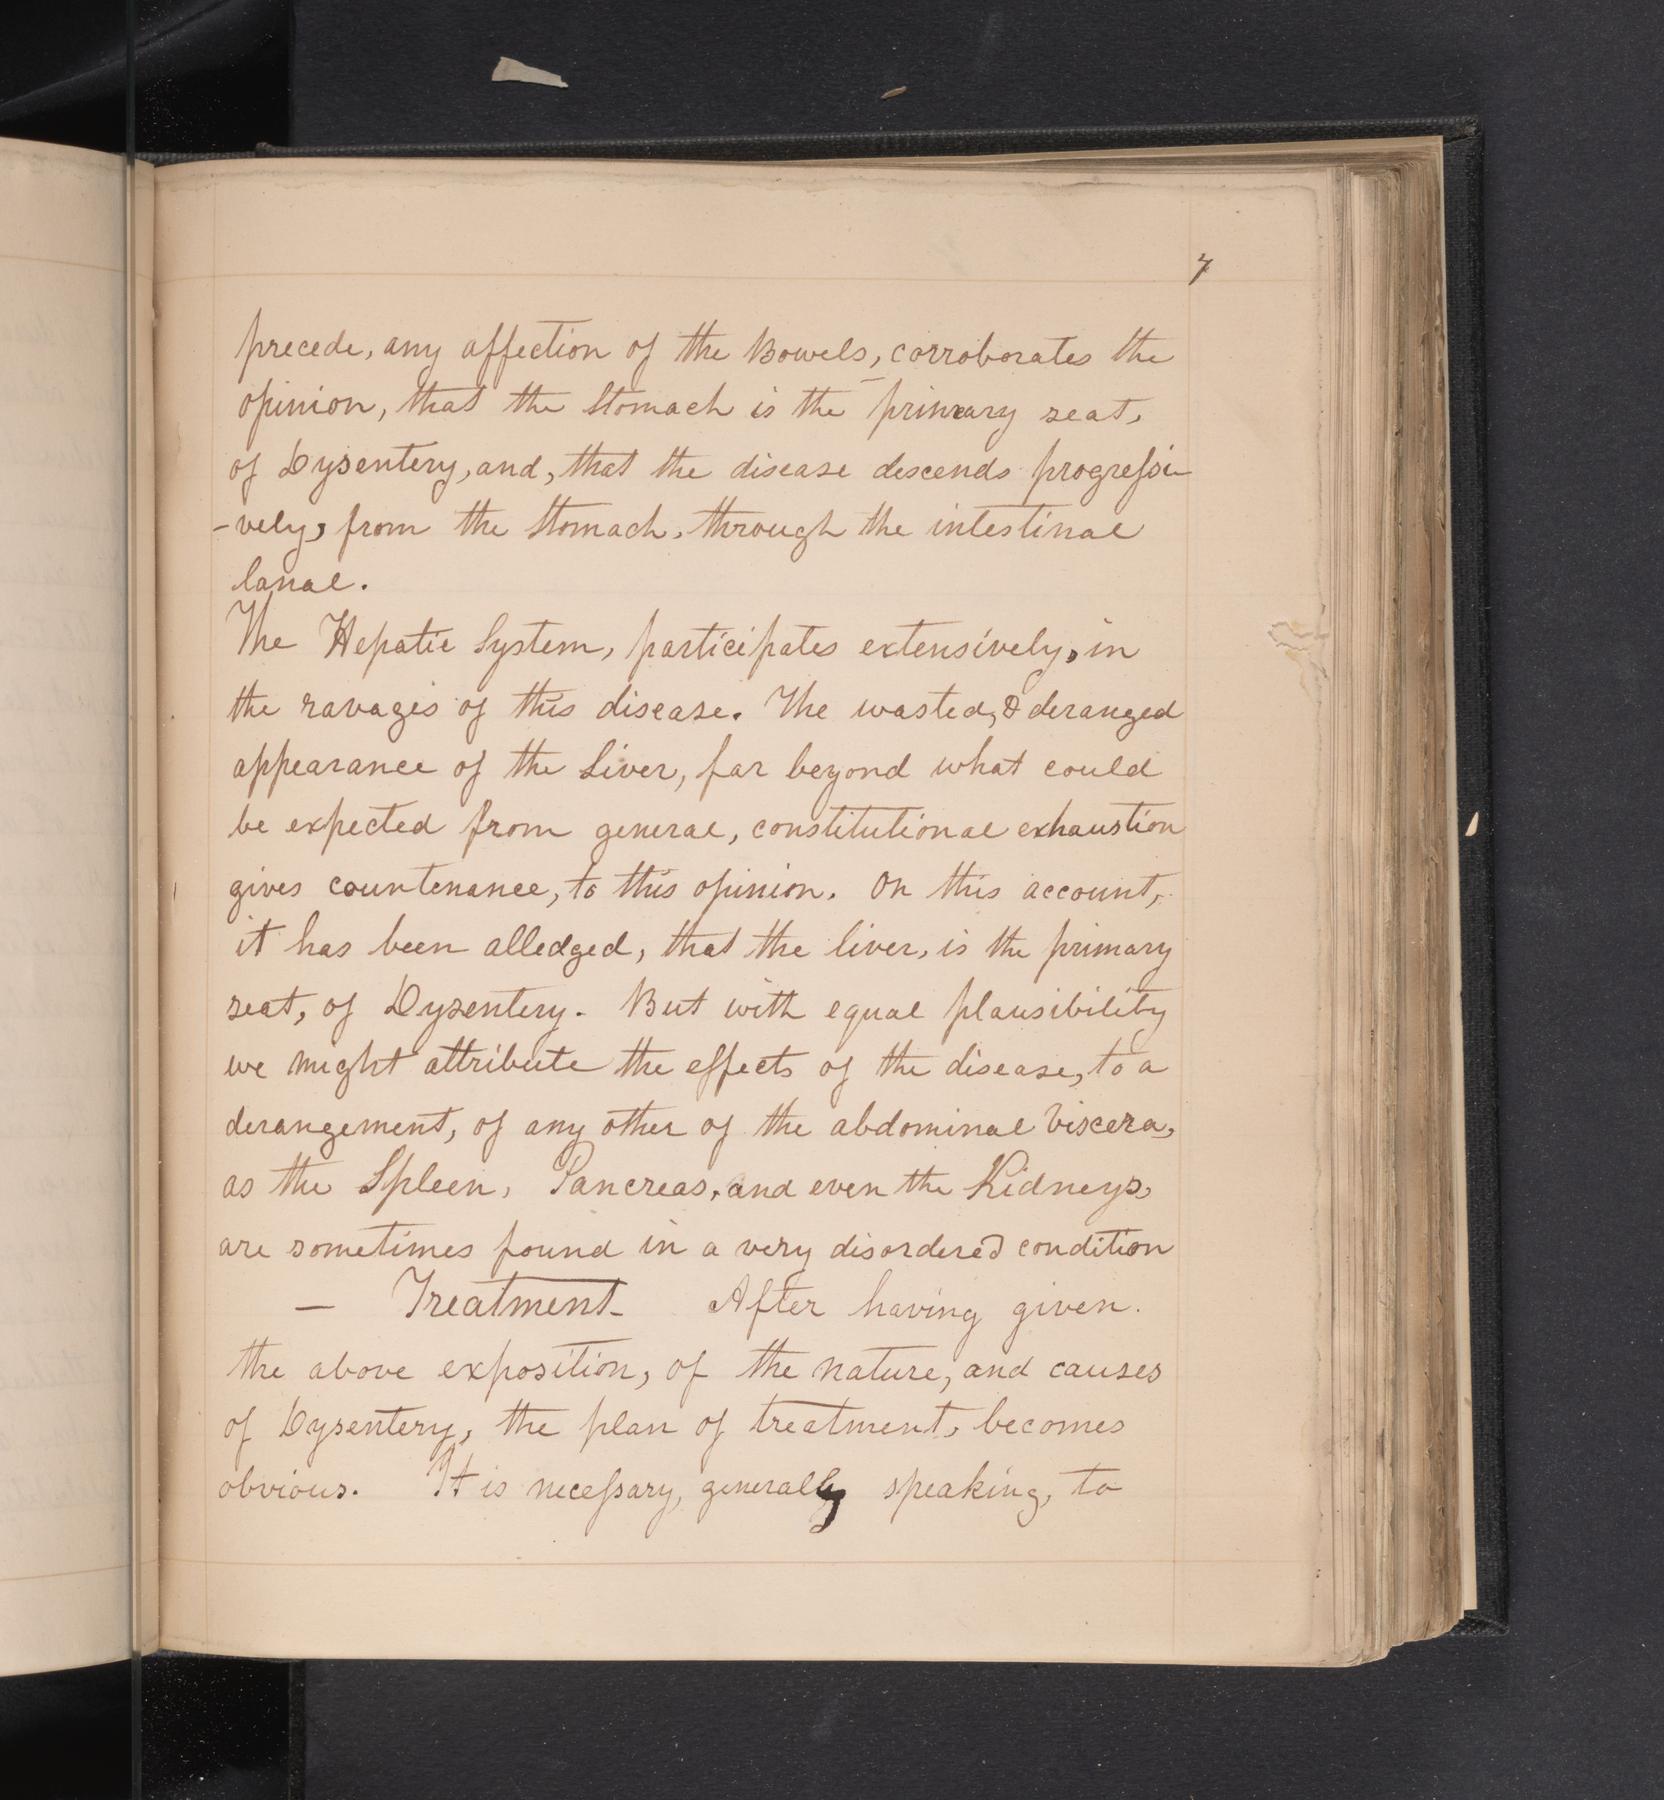 7
precede, any affection of the Bowels, corroborates the
opinion, that the Stomach is the primary seat,
of Dysentery, and, that the disease descends progressi-
-vely, from the Stomach, through the intestinal
Canal.
The Hepatic System, participates extensively, in
the ravages of this disease. The wasted, & deranged
appearance of the Liver, far beyond what could
be expected from general, constitutional exhaustion
gives countenance, to this opinion. On this account,
it has been alledged, that the liver, is the primary
seat, of Dysentery. But with equal plausibility
we might attribute the effects of the disease, to a
derangement, of any other of the abdominal Viscera,
as the Spleen, Pancreas, and even the Kidneys,
are sometimes found in a very disordered condition
— Treatment— After having given.
the above exposition, of the nature, and causes
of Dysentery, the plan of treatment, becomes
obvious. It is neceſsary, generally speaking, to